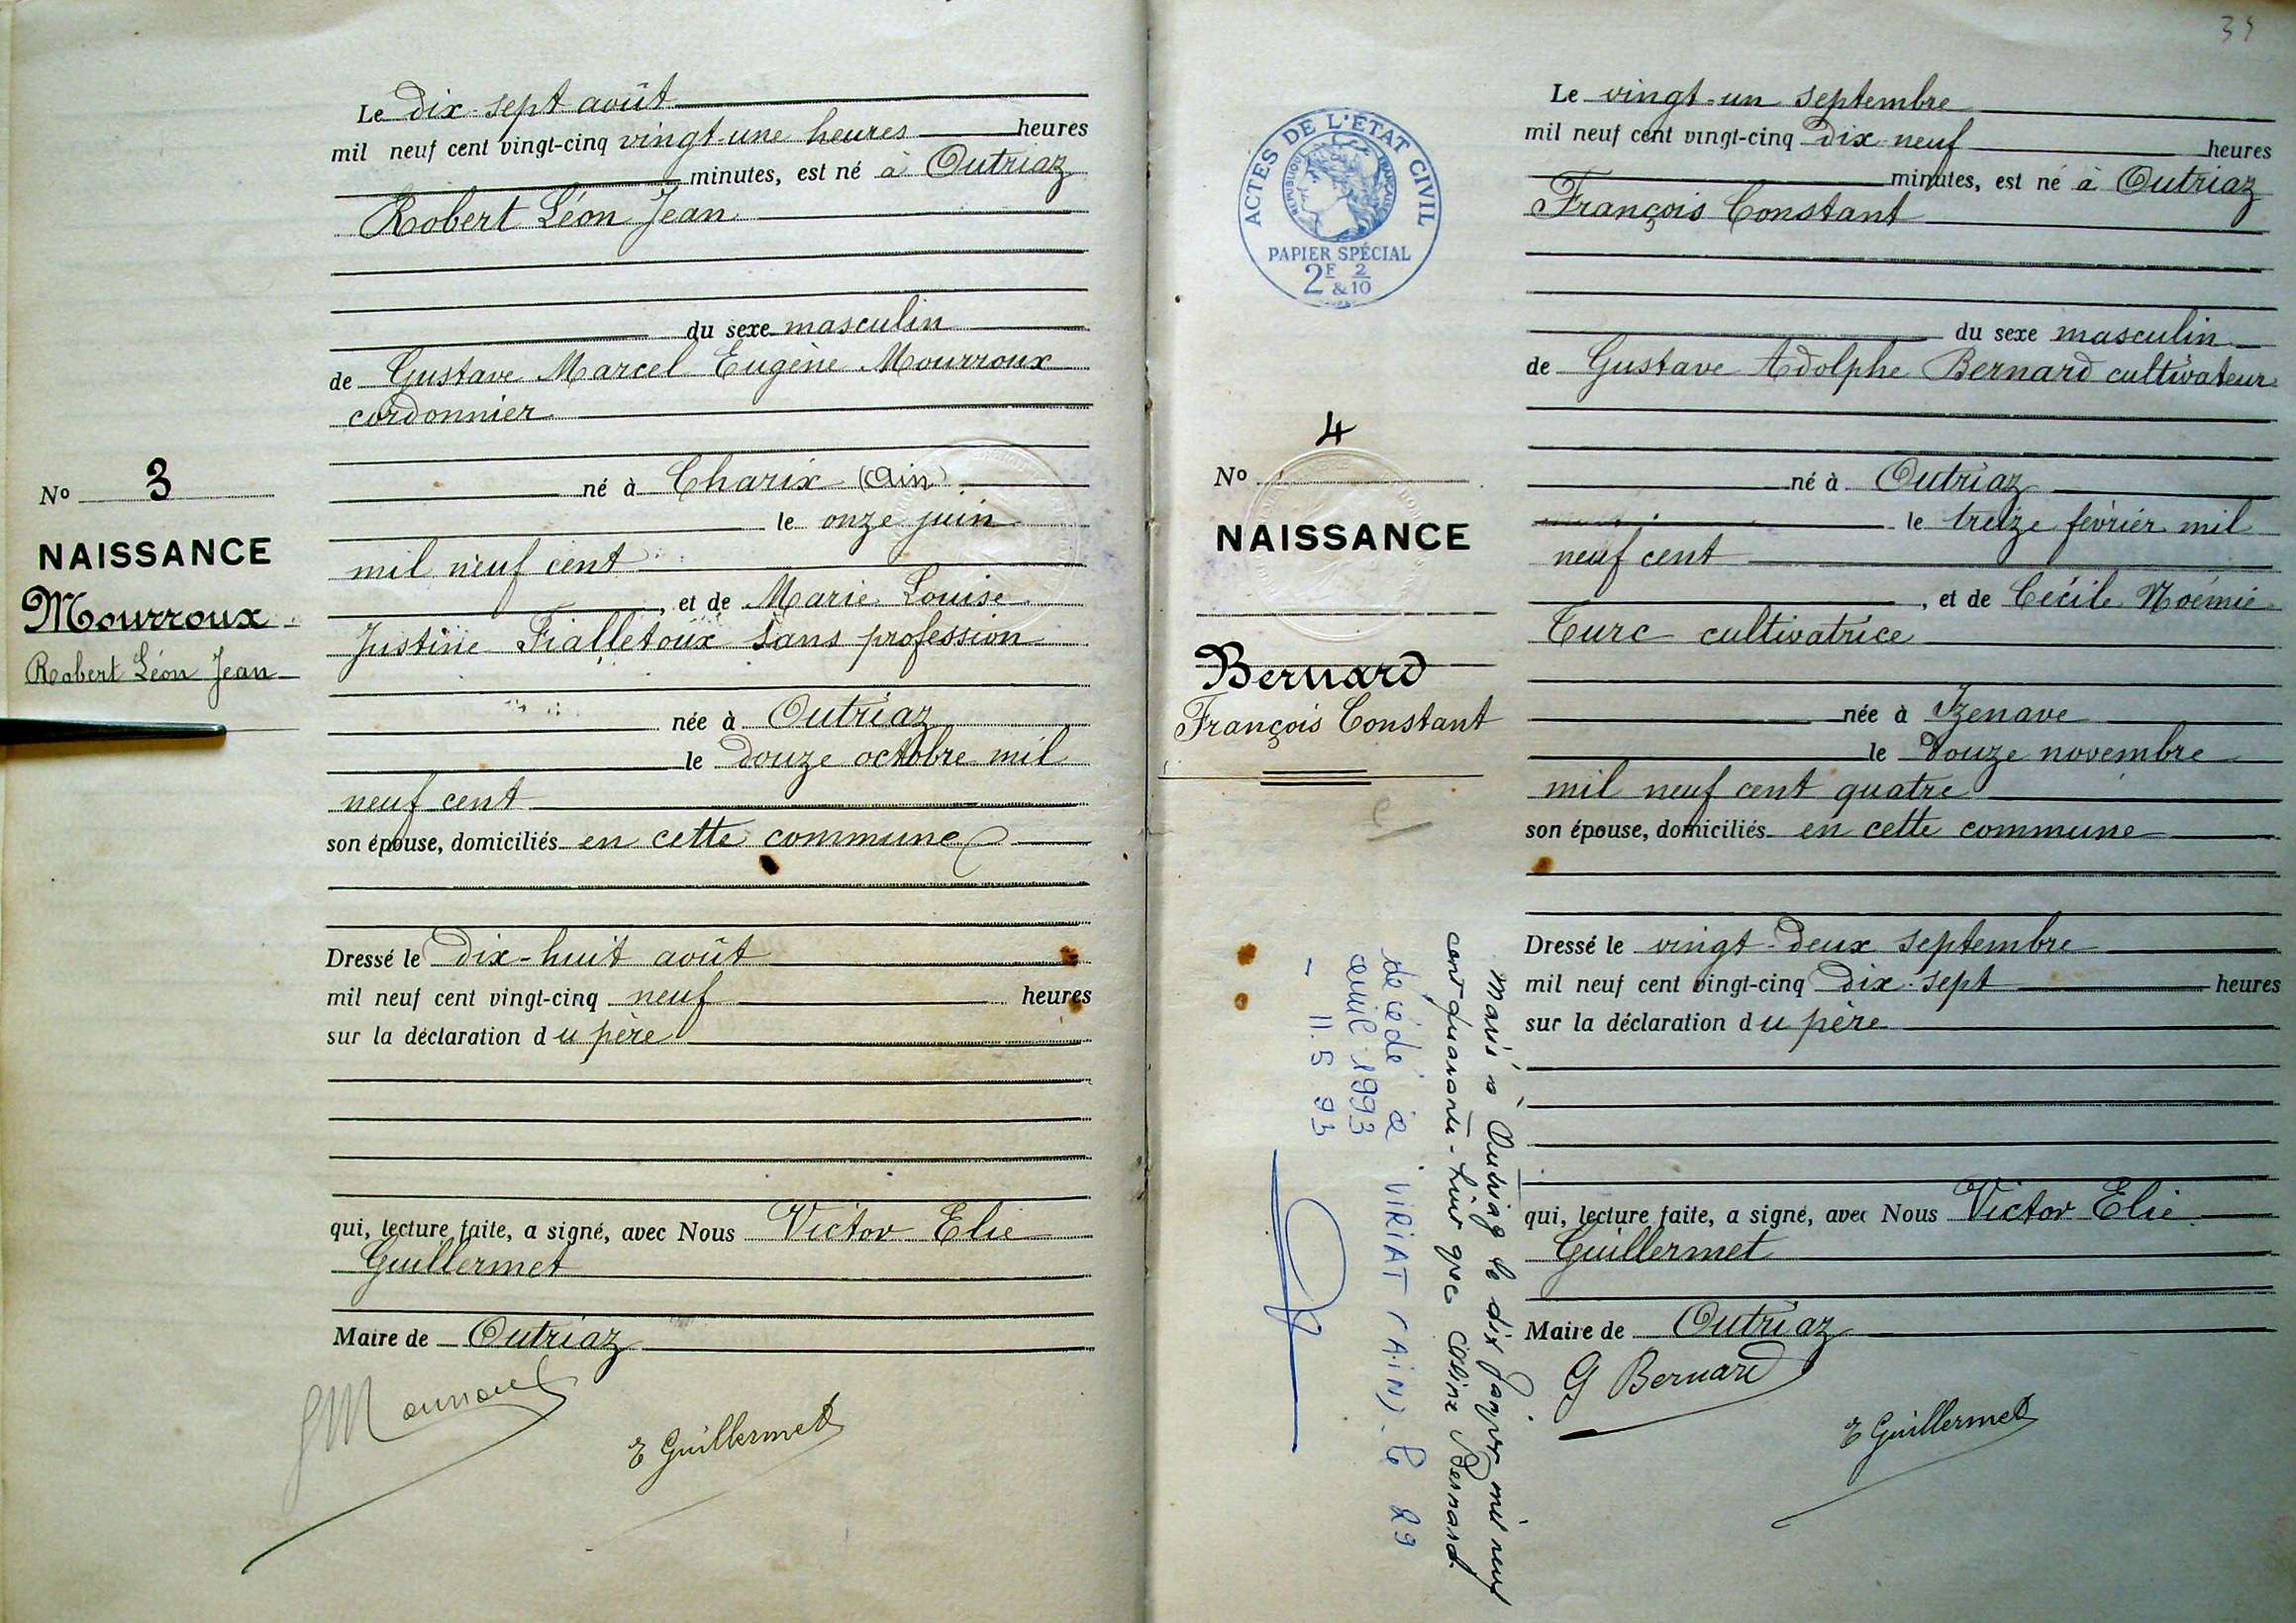 Le dix-sept août
mil neuf cent vingt-cinq vingt-une heures heures
minutes, est né à Outriaz
Robert Léon Jean
du sexe masculin
de Gustave Marcel Eugène Mourroux
cordonnier
né à Charix (Ain)
le onze juin
mil neuf cent
, et de Marie Louise
Justine Fialletoux sans profession
née à Outriaz
le douze octobre mil
neuf cent
son épouse, domiciliés en cette commune
Dressé le dix-huit août
mil neuf cent vingt-cinq neuf heures
sur la déclaration du père
qui, lecture faite, a signé, avec Nous Victor Elie
Guillermet
Maire de Outriaz
E Guillermet
No 3
NAISSANCE
Mourroux
Robert Léon Jean
ACTES DE L'ÉTAT CIVIL
RÉPUBLIQUE FRANÇAISE
PAPIER SPÉCIAL
2F & 2/10
No 4
NAISSANCE
Bernard
François Constant
Marié à Outriaz le dix Janvier mil neuf
cent quarante-huit avec Bernard
décédé à VIRIAT (AIN) le 29
avril 1993
- 11.5 93
Le vingt-un septembre
mil neuf cent vingt-cinq dix-neuf heures
minutes, est né à Outriaz
François Constant
du sexe masculin
de Gustave Adolphe Bernard cultivateur
né à Outriaz
le treize février mil
neuf cent
, et de Cécile Noémie
Turc cultivatrice
née à Izenave
le douze novembre
mil neuf cent quatre
son épouse, domiciliés en cette commune
Dressé le vingt-deux septembre
mil neuf cent vingt-cinq dix-sept heures
sur la déclaration du père
qui, lecture faite, a signé, avec Nous Victor Elie
Guillermet
Maire de Outriaz
G Bernard
E Guillermet